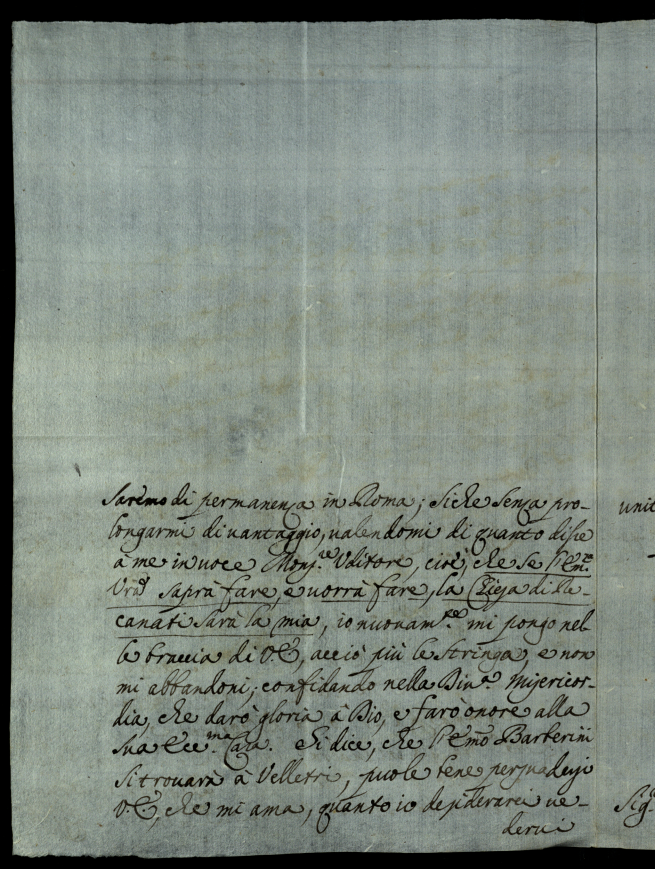 Sarèmo di permanenza in Roma; siche senza pro-
longarmi di vantaggio, valendomi di quanto disse
à me in voce Mons.re Uditore, cioè, che se l'Em.za
Vrã saprà fare, e vorrà fare, la Chiesa di Re-
canati sarà la mia, io nuovam.te mi pongo nel-
le braccia di V.E, acciò più le stringa, e non
mi abbandoni; confidando nella Div.a misericor-
dia, che darò gloria à Dio, e farò onore alla
sua Ecc.ma Casa. Si dice, che l'Emo Barberini
si trovarà à Velletri, puole bene persuadersi
V.E, che mi ama, quanto io desiderarei ve-
dervi
unic
Sig.